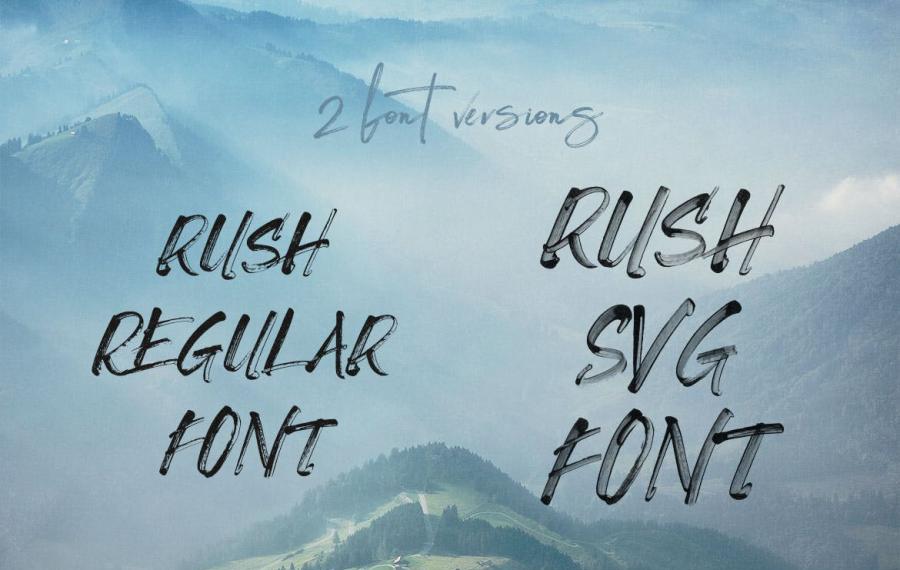 2 font versions
RUSH
REGULAR
FONT
RUSH
SVG
FONT